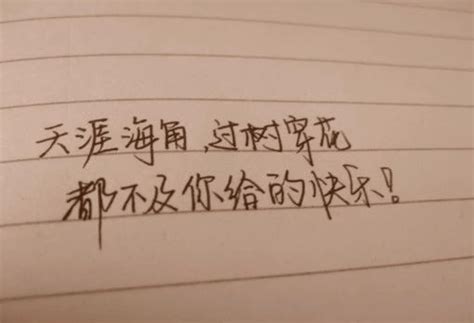 天涯海角,过树穿花
都不及你给的快乐!